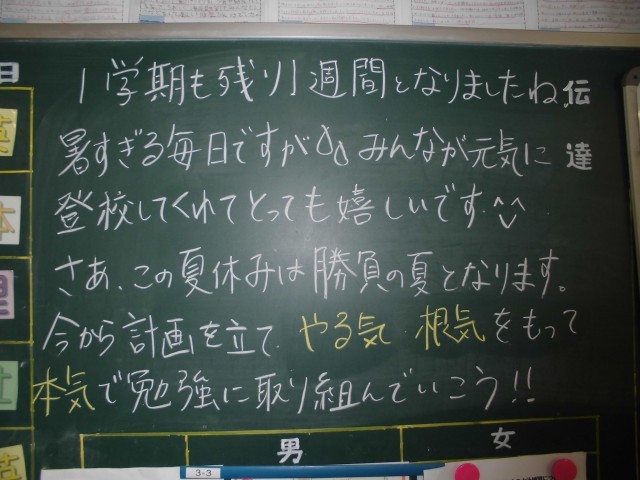 1学期も残り1週間となりましたね。
暑すぎる毎日ですがみんなが元気に
登校してくれてとっても嬉しいです^^
さあ、この夏休みは勝負の夏となります。
今から計画を立て、やる気 根気をもって
本気で勉強に取り組んでいこう!!
伝達
日
英
体
理
社
英
男
女
3-3